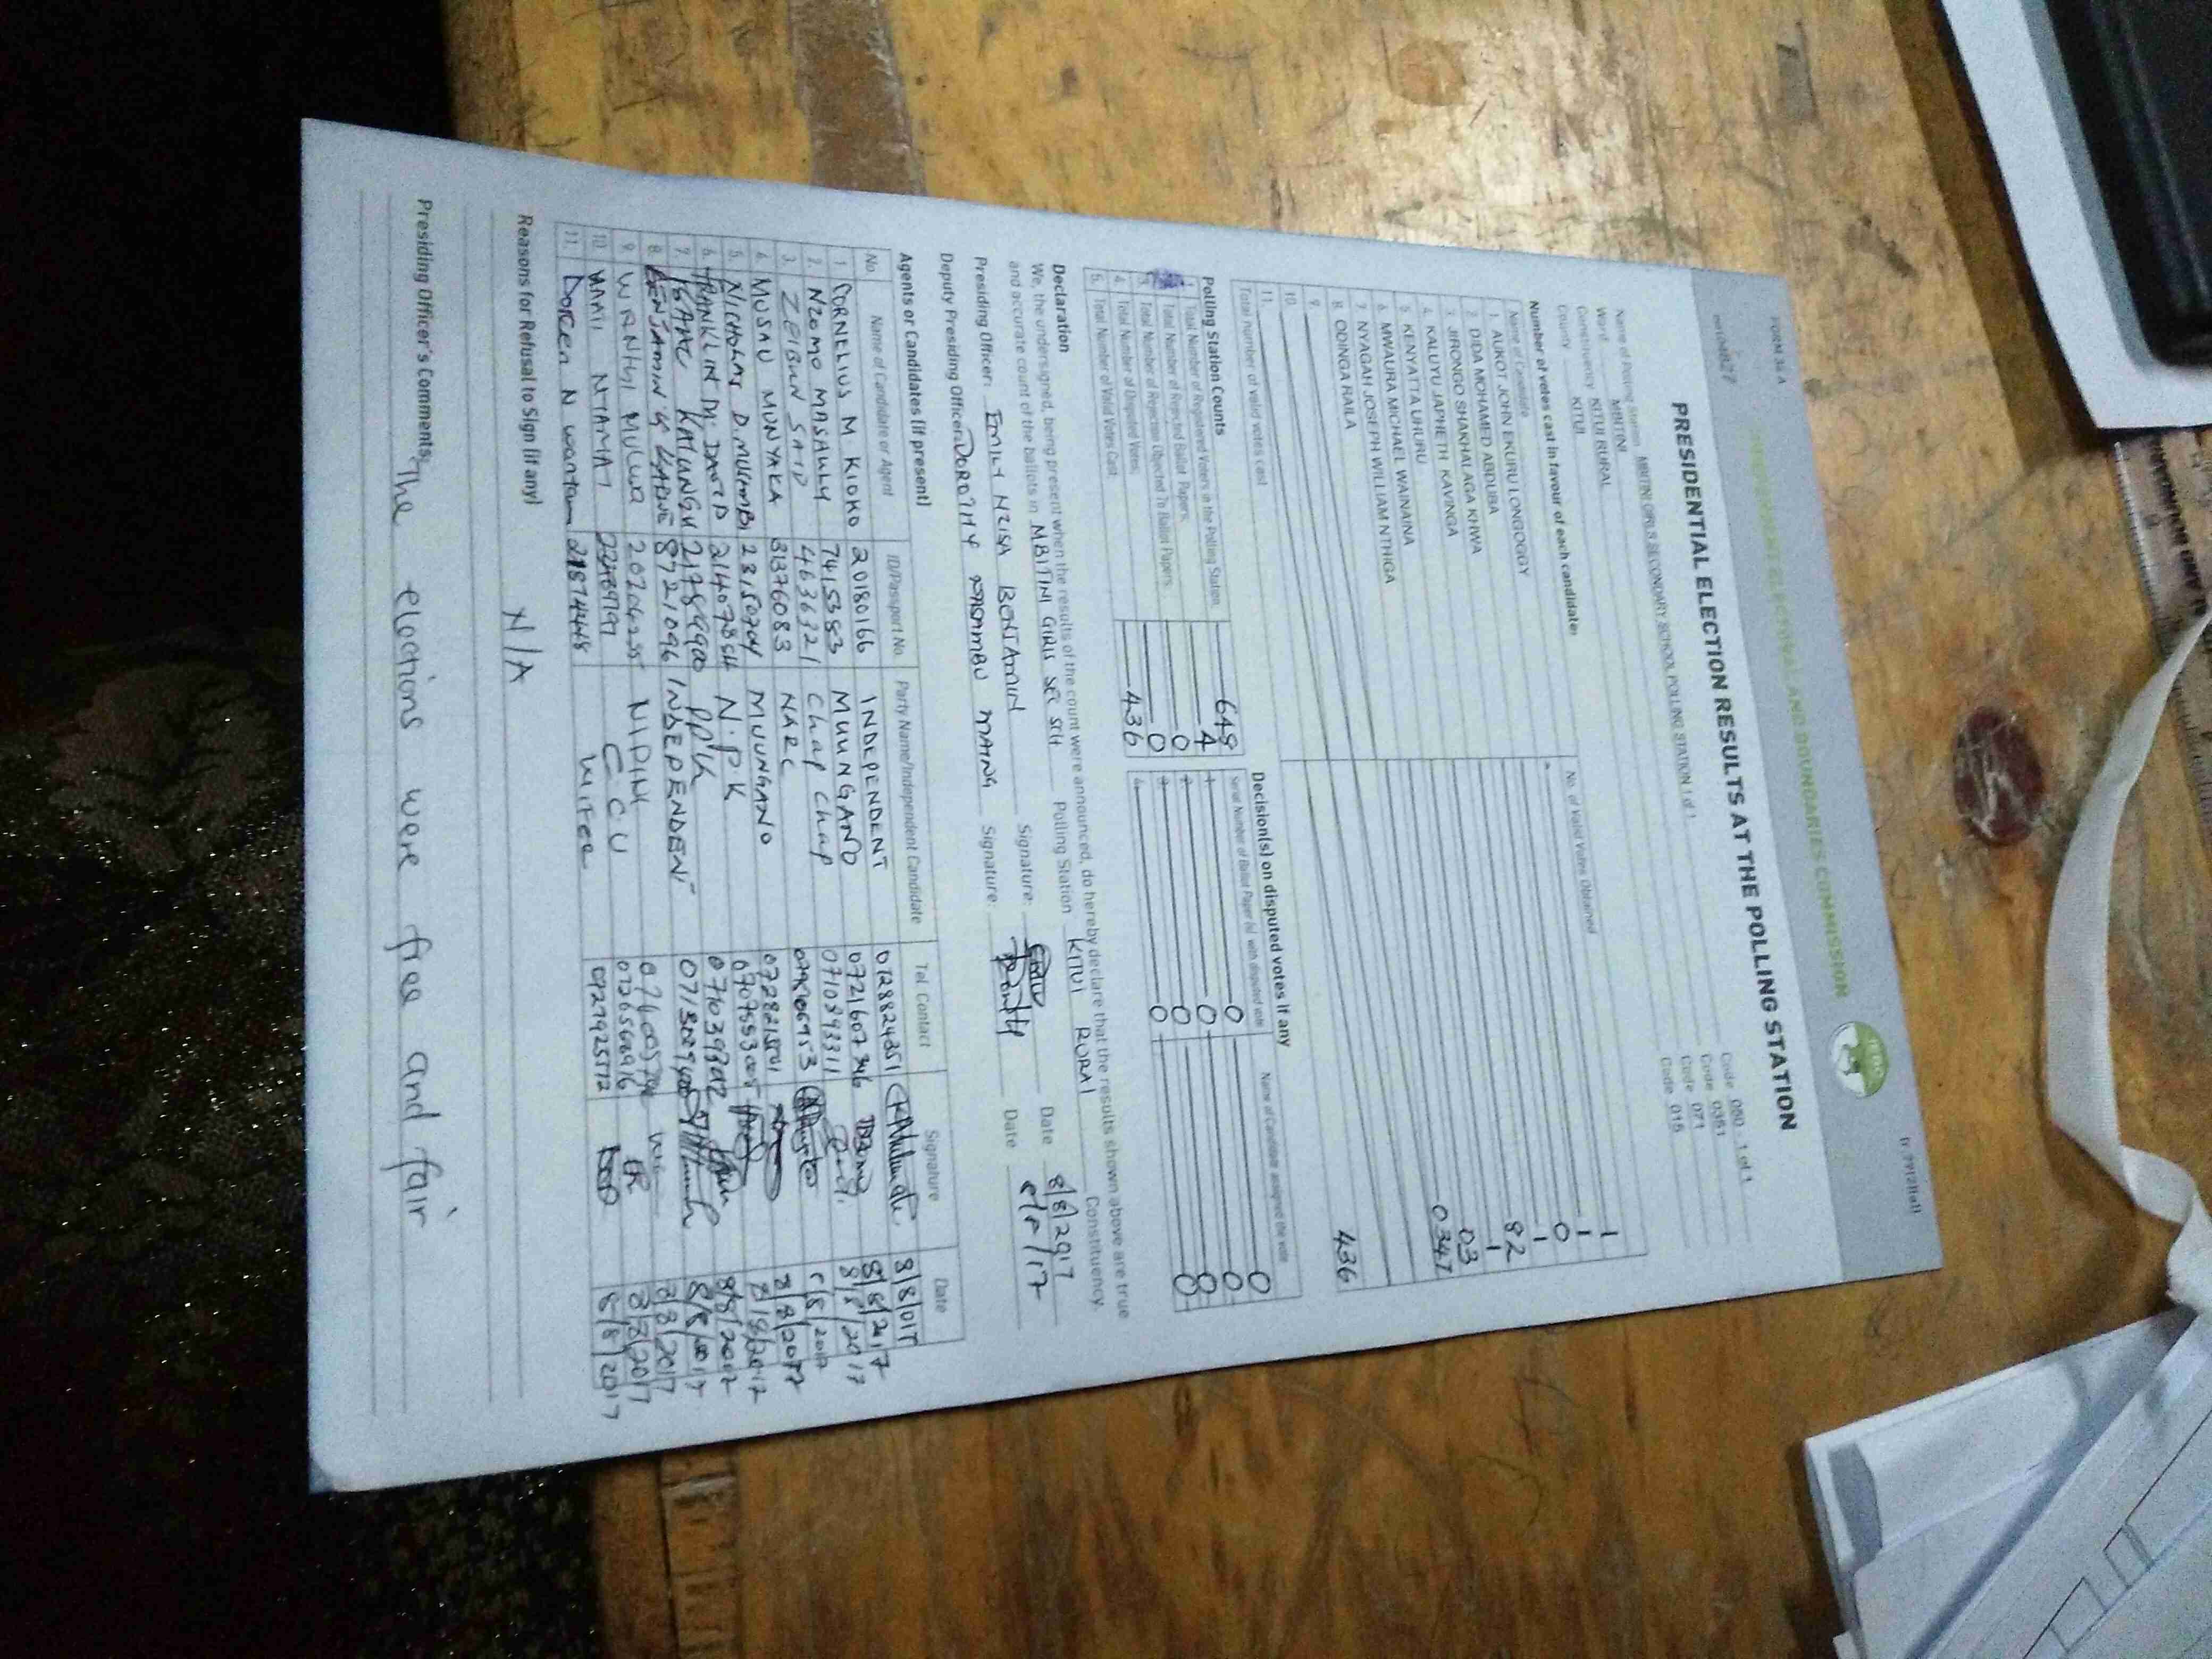 FORM 34 A
INDEPENDENT ELECTORAL AND BOUNDARIES COMMISSION
IEBC
PRESIDENTIAL ELECTION RESULTS AT THE POLLING STATION
Name of Polling Station MBITINI GIRLS SECONDARY SCHOOL POLLING STATION 1 of 1 Code 080 - 1 of 1
Ward MBITINI Code 0351
Constituency KITUI RURAL Code 071
County KITUI Code 015
Number of votes cast in favour of each candidate:
Name of Candidate No. of Valid Votes Obtained
1. AUKOT JOHN EKURU LONGOGGY 1
2. DIDA MOHAMED ABDUBA 1
3. JIRONGO SHAKHALAGA KHWA 0
4. KALUYU JAPHETH KAVINGA 1
5. KENYATTA UHURU 82
6. MWAURA MICHAEL WAINAINA 1
7. NYAGAH JOSEPH WILLIAM NTHIGA 03
8. ODINGA RAILA 0347
9.
10.
11.
Total number of valid votes cast 436
Polling Station Counts
1. Total Number of Registered Voters in the Polling Station 648
2. Total Number of Rejected Ballot Papers 4
3. Total Number of Rejection Objected To Ballot Papers 0
4. Total Number of Disputed Votes 0
5. Total Number of Valid Votes Cast 436
Decision(s) on disputed votes if any
Serial Number of Ballot Paper (s) with disputed vote Name of Candidate assigned the vote
1 0 0
2 0 0
3 0 0
4 0 0
Declaration
We, the undersigned, being present when the results of the count were announced, do hereby declare that the results shown above are true
and accurate count of the ballots in MBITINI GIRLS SEC SCH Polling Station KITUI RURAL Constituency.
Presiding Officer: EMILY NZISA BENJAMIN Signature: Date 8/8/2017
Deputy Presiding Officer: DOROTHY MAING Signature: Date 8/8/17
Agents or Candidates (if present)
No. Name of Candidate or Agent ID/Passport No. Party Name/Independent Candidate Tel. Contact Signature Date
1. CORNELIUS M KIOKO 20180166 INDEPENDENT 0728824251 8/8/017
2. NZOMO MASAULY 7415383 MUUNGANO 0721607346 8/8/2017
3. ZEIBUN SAID 4636321 Chap Chap 0710893311 8/8/2017
4. MUSAU MUNYAKA 8376083 NARC 8/8/2017
5. NICHOLAS D. MULUMBI 23150704 MUUNGANO 0722821501 8/8/2017
6. FRANKLIN M. DAVID 21407854 N.P.K 0707553005 8/8/2017
7. ISAAC KALUNGU PPK 0710398702 8/8/2017
8. BENJAMIN 8721096 INDEPENDENT 8/8/2017
9. WANTHI MULWA 20204255 NIPK 8/8/2017
10. NTAMATI CCU 0726568916 8/8/2017
11. Dorcen N wanjam 21874448 WIPER 0727925572 8/8/2017
Reasons for Refusal to Sign (if any)
N/A
Presiding Officer's Comments: The elections were free and fair